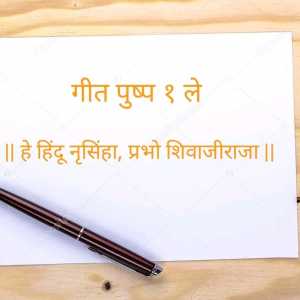 गीत पुष्प १ ले
|| हे हिंदू नृसिंहा, प्रभो शिवाजीराजा ||